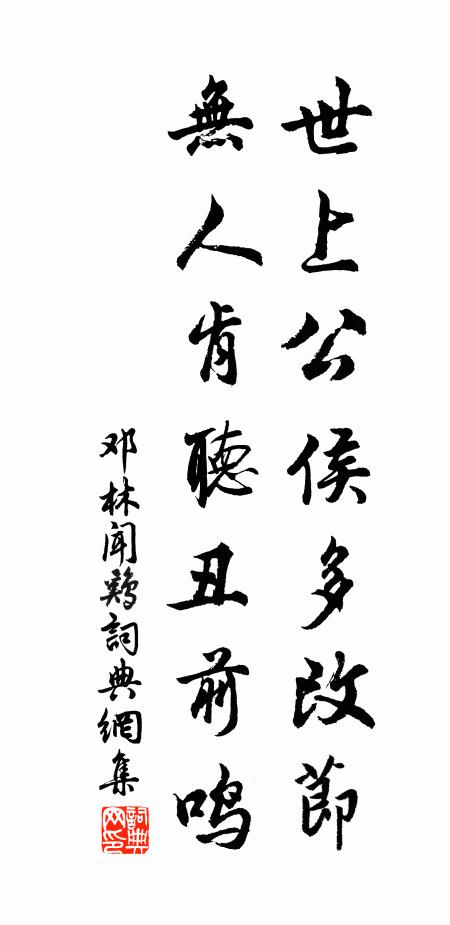 世上公侯多改節
無人肯聽丑前鸣
邓林闻鷄詞典網集
詞典网印